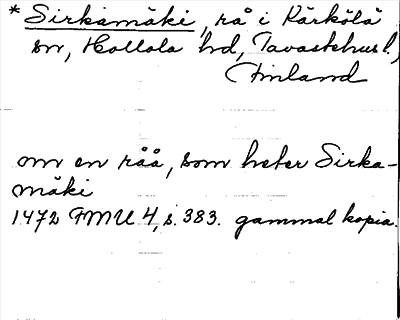 * Sirkamäki, rå i Kärkölä
sn, Hollola hd, Tavastehus l,
Finland
om en råå, som heter Sirka-
mäki
1472 FMU 4, s. 383. gammal kopia.